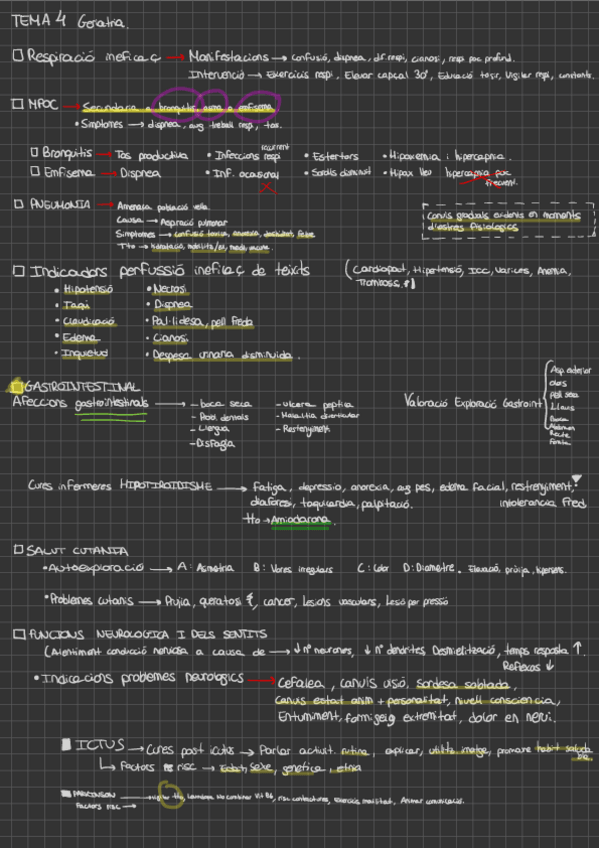 TEMA 4 Geriatria.
Respiració ineficaç → Manifestacions → confusió, dispnea, dif. respi, cianosi, resp poc profund.
Intervenció → Exercicis respi, Elevar capçal 30º, Educació tosir, Vigilar resp, constants.
MPOC → Secundaria a bronquitis, asma o emfisema
• Simptomes → dispnea, aug treball resp, tos.
Bronquitis → Tos productiva • Infeccions respi recurrent • Estertors • Hipoxemia i hipercapnia.
Emfisema → Dispnea • Inf. ocasional • Sorolls disminuit • Hipox lleu hipercapnia poc frequent.
PNEUMONIA → Amenaça població vella.
Causa → Aspiració pulmonar
Simptomes → confusió, anorexia, debilitat, febre
Tto → hidratació,
Canvis graduals evidents en moments
d'estres fisiologics
Indicadors perfussió ineficaç de teixits (Cardiopat, Hipertensió, ICC, Varices, Anemia,
Tromboss,
• Hipotensió • Necrosi
• Taqui • Dispnea
• Claudicació • Pal·lidesa, pell freda
• Edema • Cianosi
• Inquietud • Despesa urinaria disminuida.
GASTROINTESTINAL
Afeccions gastrointestinals → - boca seca - ulcera peptica
- Prob. dentals - Malaltia diverticular
- Llengua - Restrenyiment
- Disfagia
Valoració Exploració Gastroint
Asp. exterior
olors
pell seca
Llavis
Boca
Abdomen
Recte
Femta
Cures infermeres HIPOTIROIDISME → Fatiga, depressio, anorexia, aug pes, edema facial, restrenyiment,
diaforesi, taquicardia, palpitació. intolerancia Fred.
tto → Amiodarona.
SALUT CUTANIA
• Autoexploració → A: Asimetria B: Vores irregulars C: Color D: Diametre. Elevació, pruija,
• Problemes cutanis → Pruija, queratosi, cancer, Lesions vasculars, Lesió per pressio
FUNCIONS NEUROLOGICA I DELS SENTITS
(Alentiment conducció nerviosa a causa de → ↓ nº neurones, ↓ nº dendrites, Desmielització, temps resposta ↑.
Reflexos ↓
• Indicacions problemes neurologics → Cefalea, canvis visó, sordesa sobtada,
Canvis estat anim + personalitat, nivell consciencia,
Entumiment, formigeig extremitat, dolor en nervi.
ICTUS → Cures post ictus → Parlar activit. rutina, explicar, utilitz imatge, promoure habit saludable
↳ Factors risc → Edat, sexe, genetica, etnia
PARKINSON → tto, No combinar Vit B6, risc contractures, Exercicis mobilitat, Animar comunicació.
Factors risc →